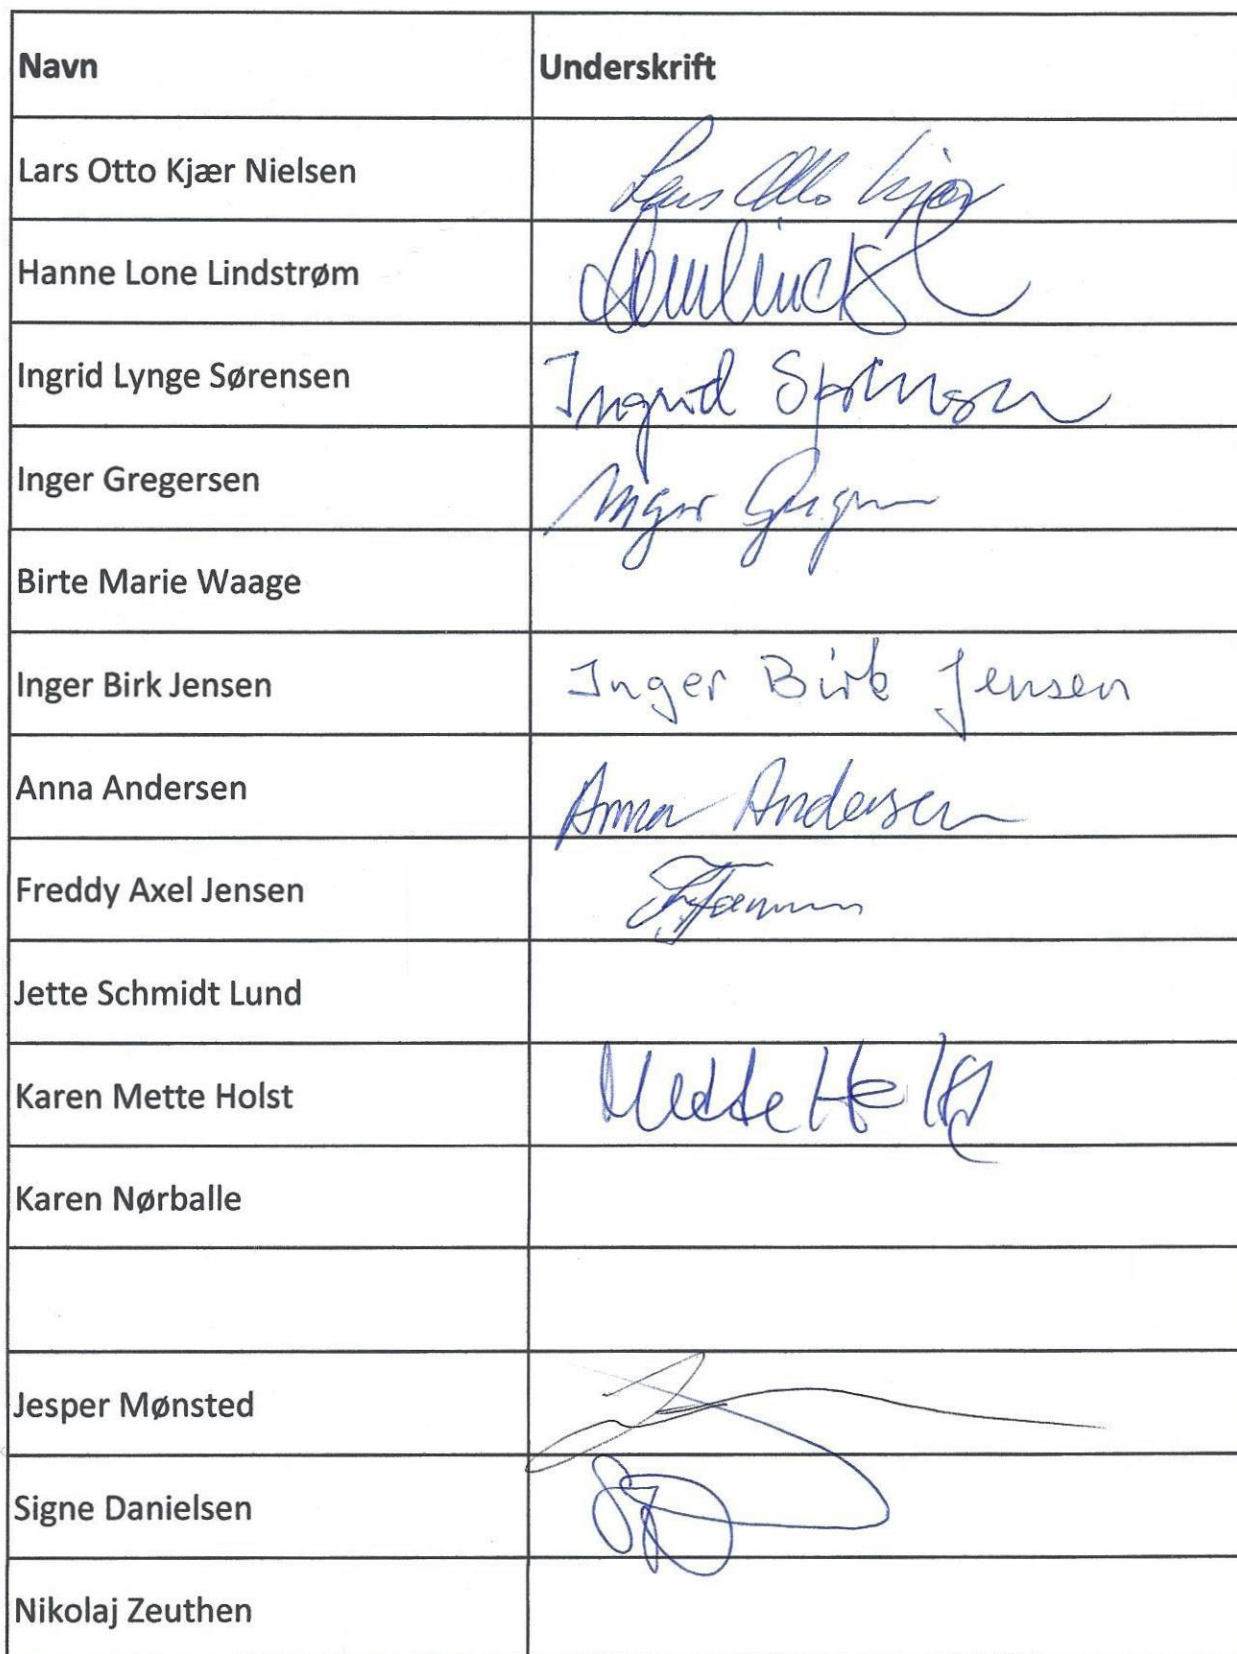 Navn Underskrift
Lars Otto Kjær Nielsen Lars Otto Kjær
Hanne Lone Lindstrøm
Ingrid Lynge Sørensen Ingrid Sørensen
Inger Gregersen Inger
Birte Marie Waage
Inger Birk Jensen Inger Birk Jensen
Anna Andersen Anna Andersen
Freddy Axel Jensen
Jette Schmidt Lund
Karen Mette Holst Mette Holst
Karen Nørballe
Jesper Mønsted
Signe Danielsen
Nikolaj Zeuthen